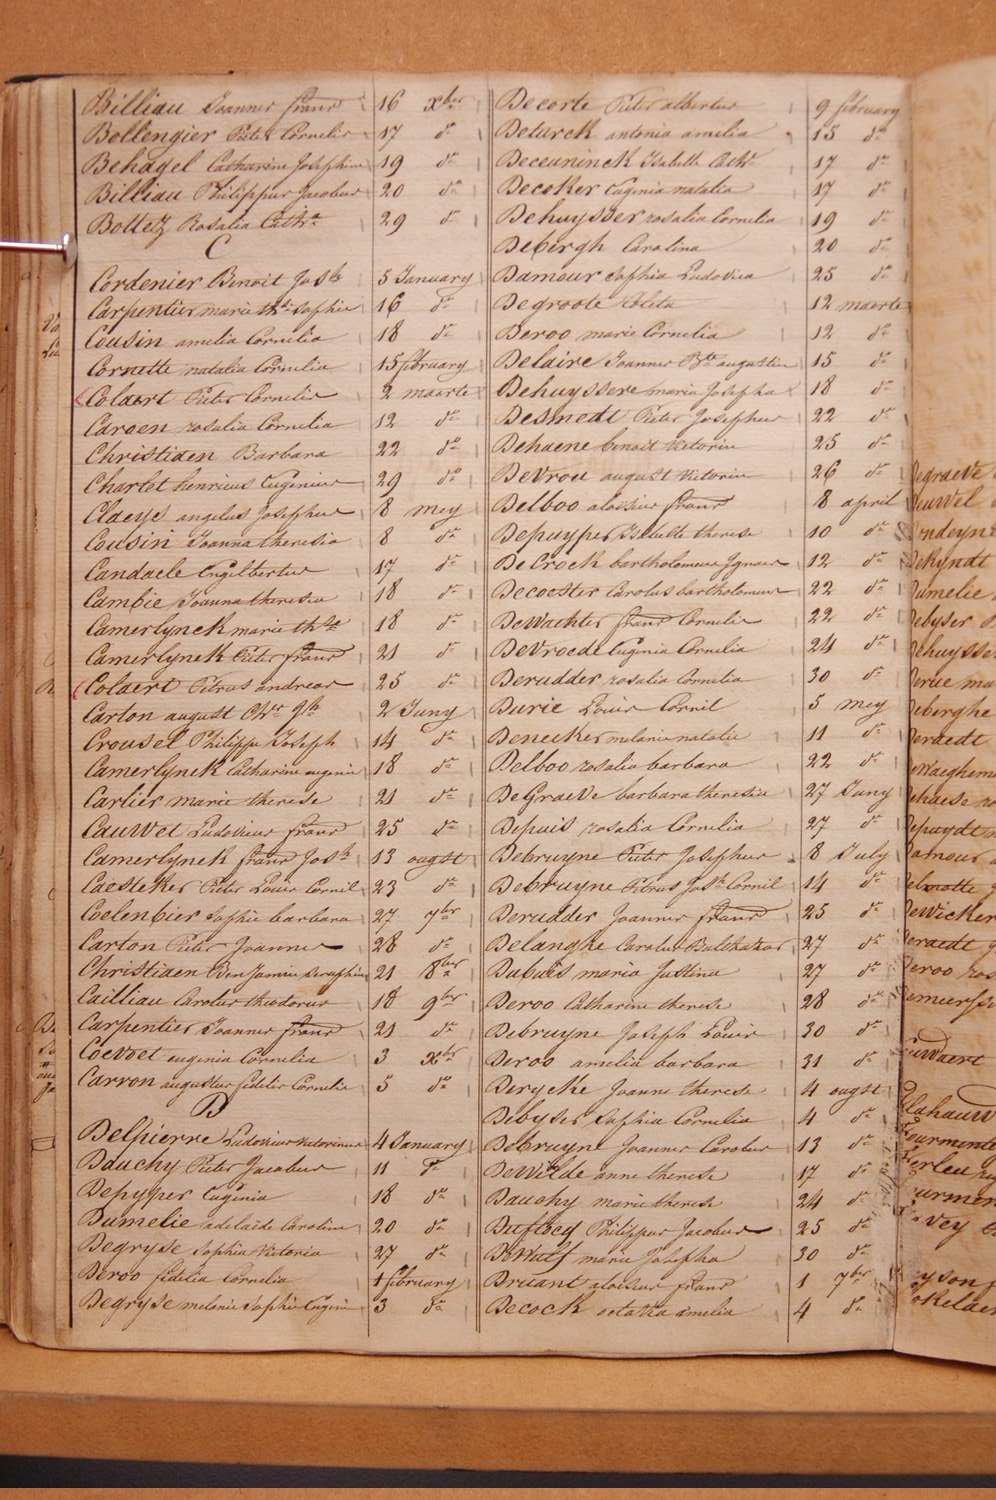 Billiau Joannes franc 16 xber
Bollengier Pieter Cornelis 17 do
Behagel Catharine Josephine 19 do
Billiau Philippus Jacobus 20 do
Bottez Rosalia Cath 29 do
C
Cordenier Benoit Josh 5 January
Carpentier marie ths Sophie 16 do
Cousin amelia Cornelia 18 do
Cornette natalia Cornelia 15 february
Colaert Pieter Cornelis 2 maerte
Caroen rosalia Cornelia 12 do
Christiaen Barbara 22 do
Charlet henricus Eugenius 29 do
Claeys angelus Josephus 8 mey
Cousin Joanna theresia 8 do
Candaele Engelbertus 17 do
Cambie Joanna theresia 18 do
Camerlynck marie ths 18 do
Camerlynck Pieter franc 21 do
Colaert Petrus andreas 25 do
Carton august 2 Juny
Crousel Philippe Joseph 14 do
Camerlynck Catharine eugenie 18 do
Carlier marie therese 21 do
Cauwet Ludovicus franc 25 do
Camerlynck franc Josh 13 ougst
Caesteker Pieter Louis Cornil 23 do
Coelenbier Sophie barbara 27 7ber
Carton Pieter Joannes 28 do
Christiaen Benjamin Seraphin 21 8ber
Cailliau Carolus theodorus 18 9ber
Carpentier Joannes franc 21 do
Coevoet eugenia Cornelia 3 xber
Carron augustus fidelis Cornelis 5 do
D
Delpierre Ludovicus Victorinus 4 January
Dauchy Pieter Jacobus 11 do
Depyper Eugenia 18 do
Dumelie adelaide Caroline 20 do
Degryse Sophia Victoria 27 do
Deroo fidelia Cornelia 1 february
Degryse melanie Sophie Eugenie 3 do
Decorte Pieter albertus 9 february
Deturck antonia amelia 15 do
Deceuninck Isabelle 17 do
Decoker Eugenia natalia 17 do
Dehuysser rosalia Cornelia 19 do
Debergh Carolina 20 do
Damour Sophia Ludovica 25 do
Degroote 12 maerte
Deroo marie Cornelia 12 do
Delaire Joannes Bte augustin 15 do
Dehuyssere maria Josepha 18 do
Desmedt Pieter Josephus 22 do
Dehaene benoit Victorin 25 do
Devrou august Victorin 26 do
Delboo aloisius franc 8 april
Depuyper Isabelle therese 10 do
DeCrock bartholomeus Ignace 12 do
Decoester Carolus bartholomeus 22 do
Dewachter franc Cornelis 22 do
Devroede Eugenia Cornelia 24 do
Derudder rosalia Cornelia 30 do
Durie Louis Cornil 5 mey
Denecker melanie natalie 11 do
Delboo rosalia barbara 22 do
DeGraeve barbara theresia 27 Juny
Depuis rosalia Cornelia 27 do
Debruyne Pieter Josephus 8 July
Debruyne Petrus Josh Cornil 14 do
Derudder Joannes franc 25 do
Delanghe Carolus Balthazar 27 do
Dubuis maria Justina 27 do
Deroo Catharine therese 28 do
Debruyne Joseph Louis 30 do
Deroo amelia barbara 31 do
Derycke Joanna therese 4 ougst
Debyser Sophia Cornelia 4 do
Debruyne Joannes Carolus 13 do
DeWilde anne therese 17 do
Dauchy marie therese 24 do
Duflocq Philippus Jacobus 25 do
DeWulf marie Josepha 30 do
Druant aloisius franc 1 7ber
Decock octavia amelia 4 do